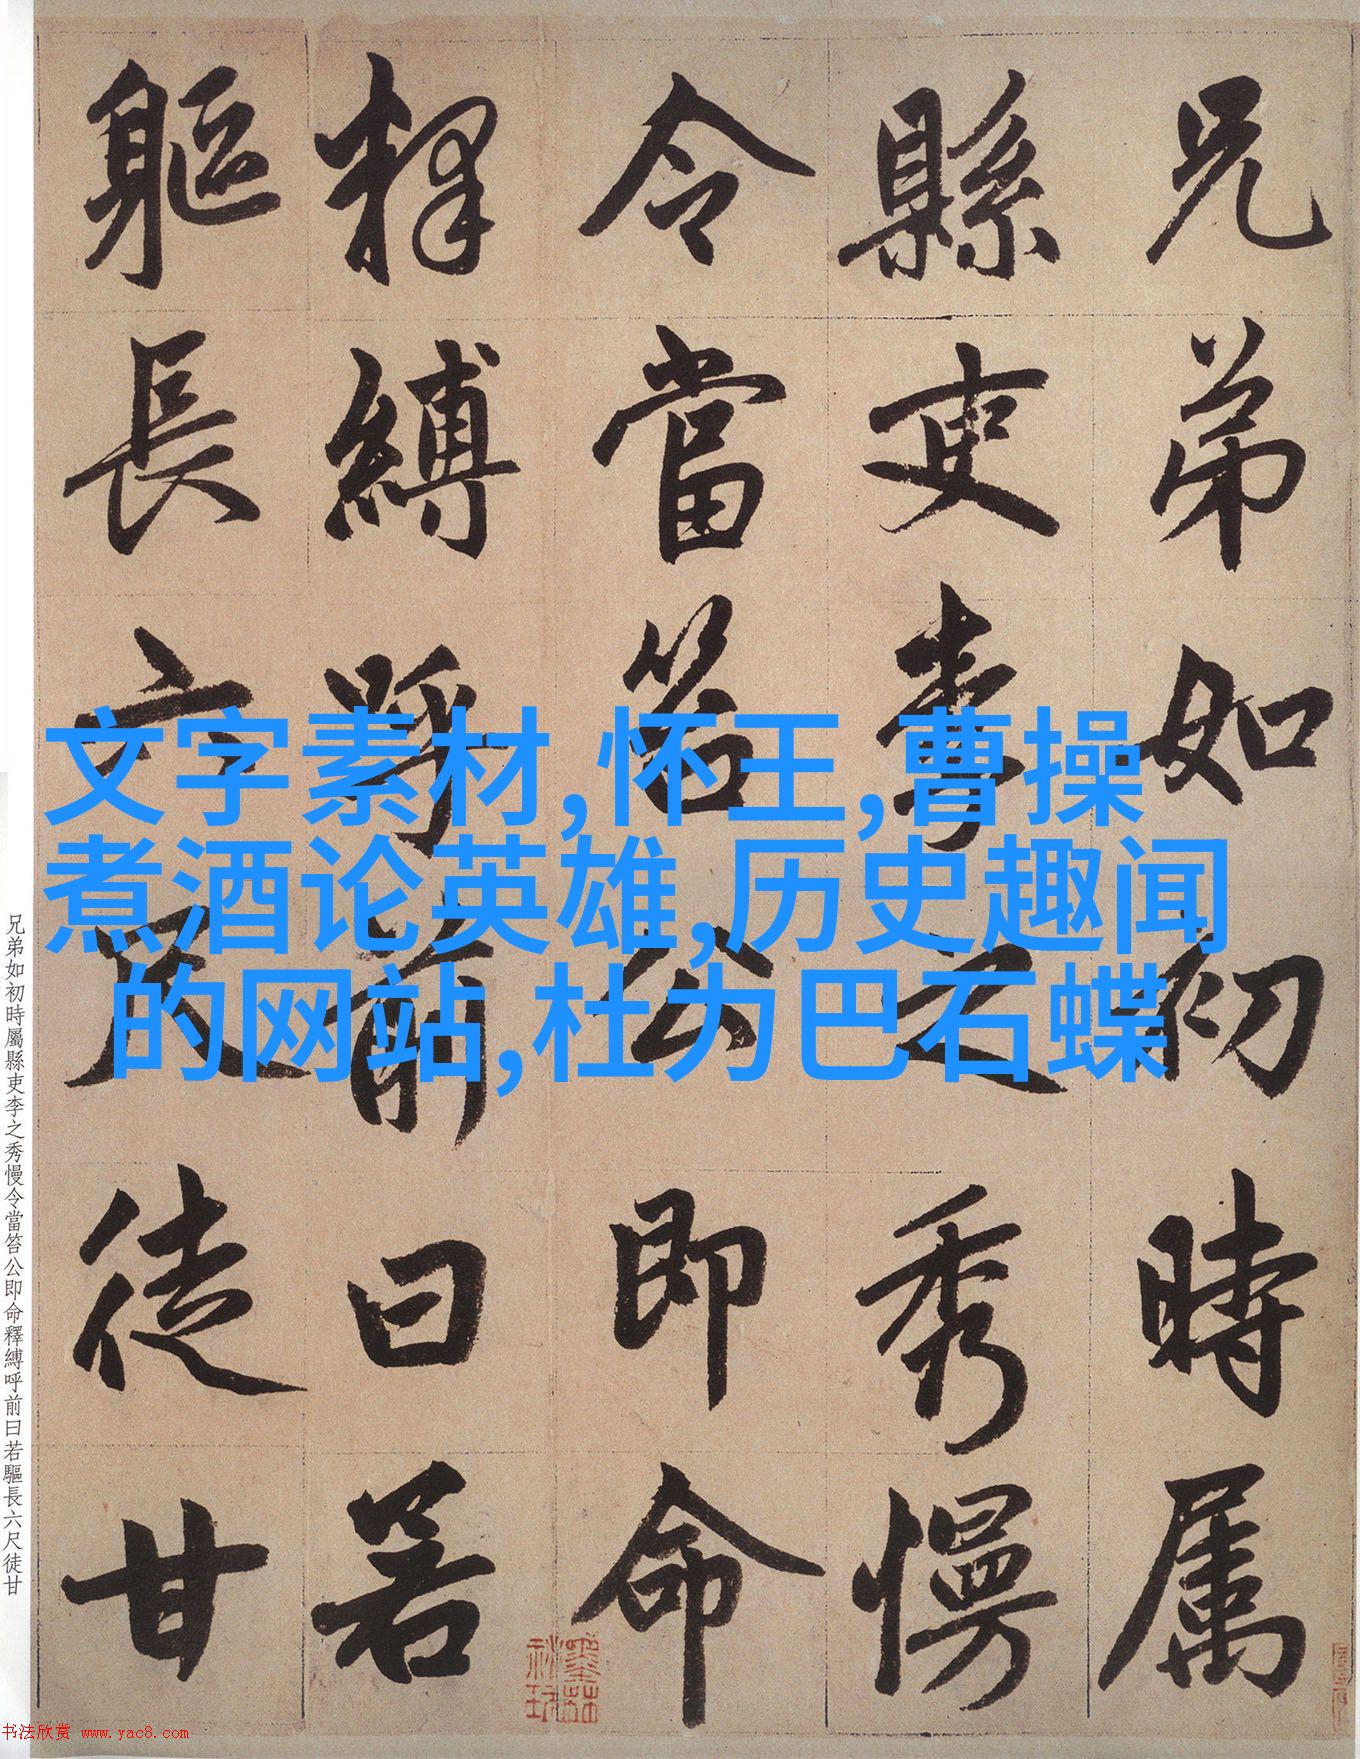 兄弟如初時属
縣吏李之秀慢
令當笞公即命
釋縛呼前曰若
軀長六尺徒甘
文字素材,怀王,曹操
煮酒论英雄,历史趣闻
的网站,杜力巴石蝶
兄弟如初時屬縣吏李之秀慢令當笞公即命釋縛呼前曰若驅長六尺徒甘
书法欣赏 www.yac8.com